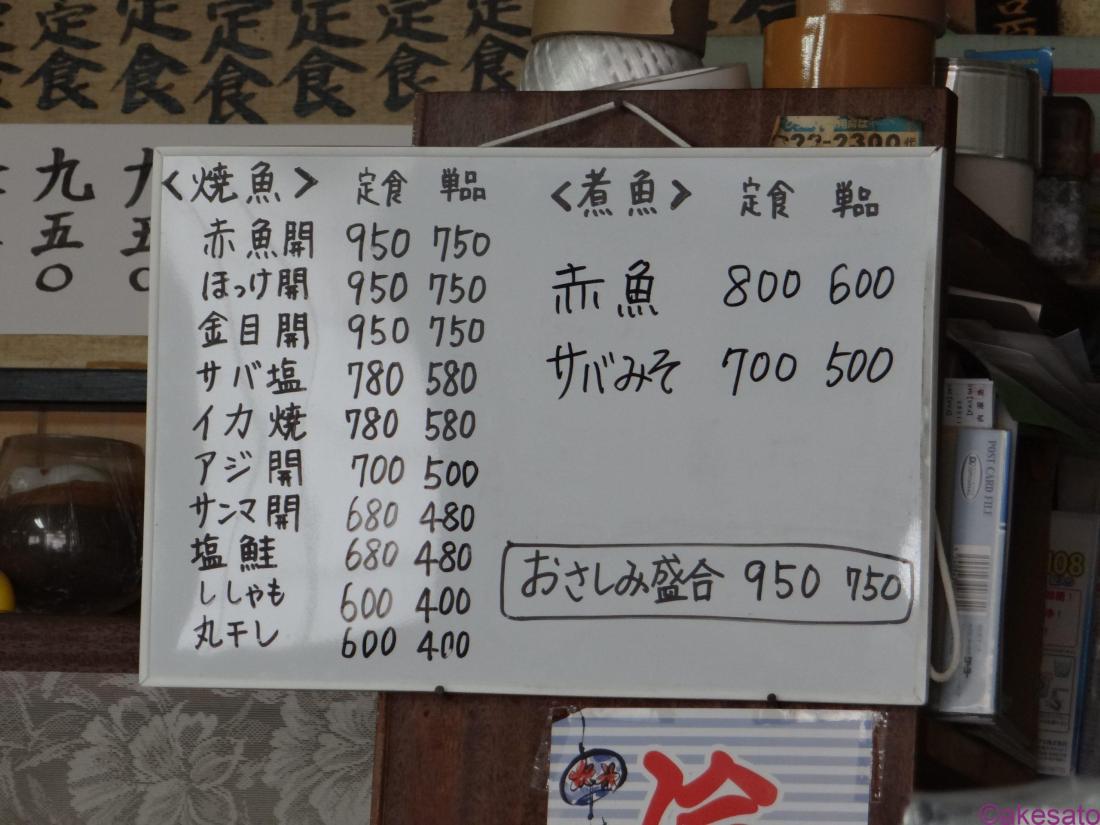 定食
定食
定食
定食
定食
定食
九五〇
<焼魚> 定食 単品
赤魚開 950 750
ほっけ開 950 750
金目開 950 750
サバ塩 780 580
イカ焼 780 580
アジ開 700 500
サンマ開 680 480
塩鮭 680 480
ししゃも 600 400
丸干し 600 400
<煮魚> 定食 単品
赤魚 800 600
サバみそ 700 500
おさしみ盛合 950 750
23-2300代
POST CARD FILE
108
氷
©akesato